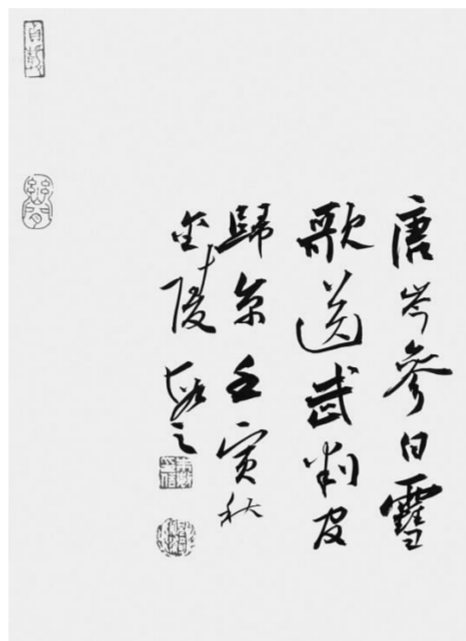 唐岑參白雪
歌送武判官
歸京壬寅秋
金陵